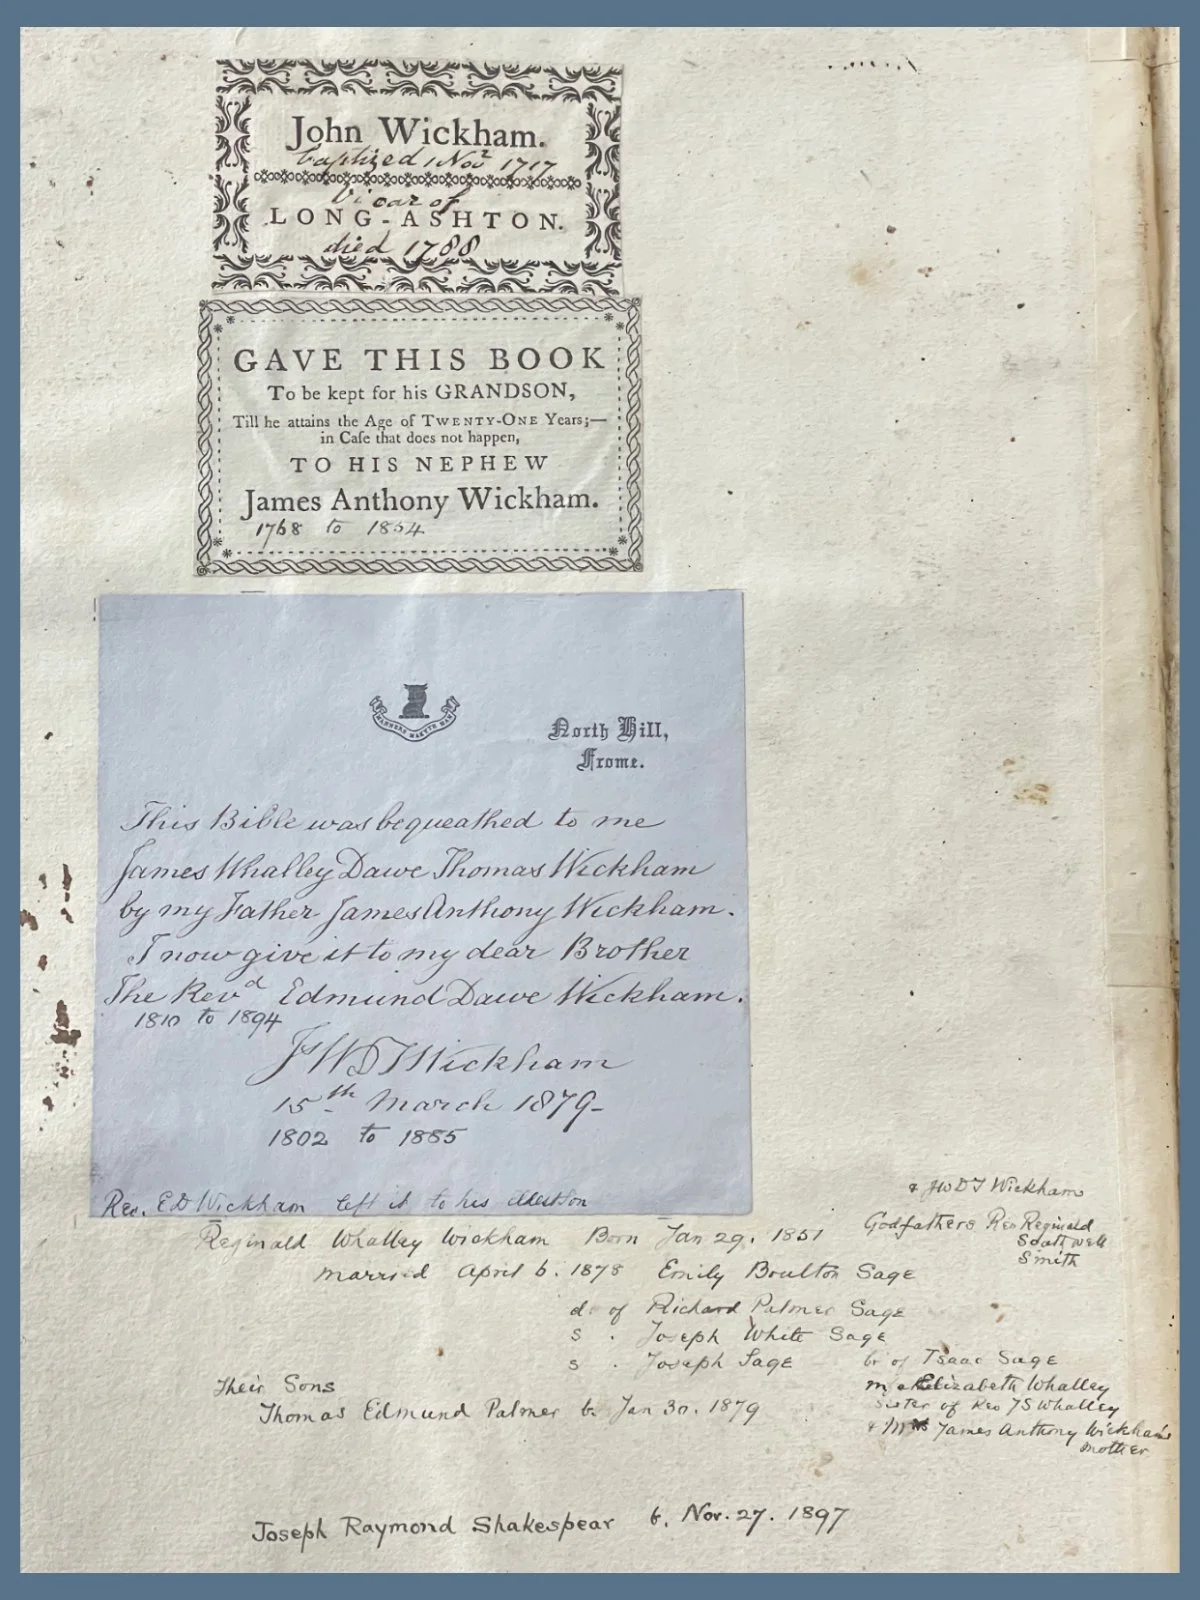 John Wickham.
baptized 1 Nov.r 1717
Vicar of
LONG-ASHTON.
died 1788
GAVE THIS BOOK
To be kept for his GRANDSON,
Till he attains the Age of TWENTY-ONE Years;—
in Caſe that does not happen,
TO HIS NEPHEW
James Anthony Wickham.
1768 to 1854
MANNERS MAKYTH MAN
North Hill,
Frome.
This Bible was bequeathed to me
James Whalley Dawe Thomas Wickham
by my Father James Anthony Wickham.
I now give it to my dear Brother
The Revd Edmund Dawe Wickham.
1810 to 1894
JWDTWickham
15th March 1879-
1802 to 1885
Rev. ED Wickham left it to his eldest son
Reginald Whalley Wickham Born Jan 29. 1851
& JWDT Wickham
Godfathers Rev Reginald
Southwell
Smith
married April 6. 1878 Emily Boulton Sage
d. of Richard Palmer Sage
s . Joseph White Sage
s . Joseph Sage br of Isaac Sage
m Elizabeth Whalley
Sister of Rev TS Whalley
& Mrs James Anthony Wickham's
mother
Their Sons
Thomas Edmund Palmer b. Jan 30. 1879
Joseph Raymond Shakespear b. Nov. 27. 1897